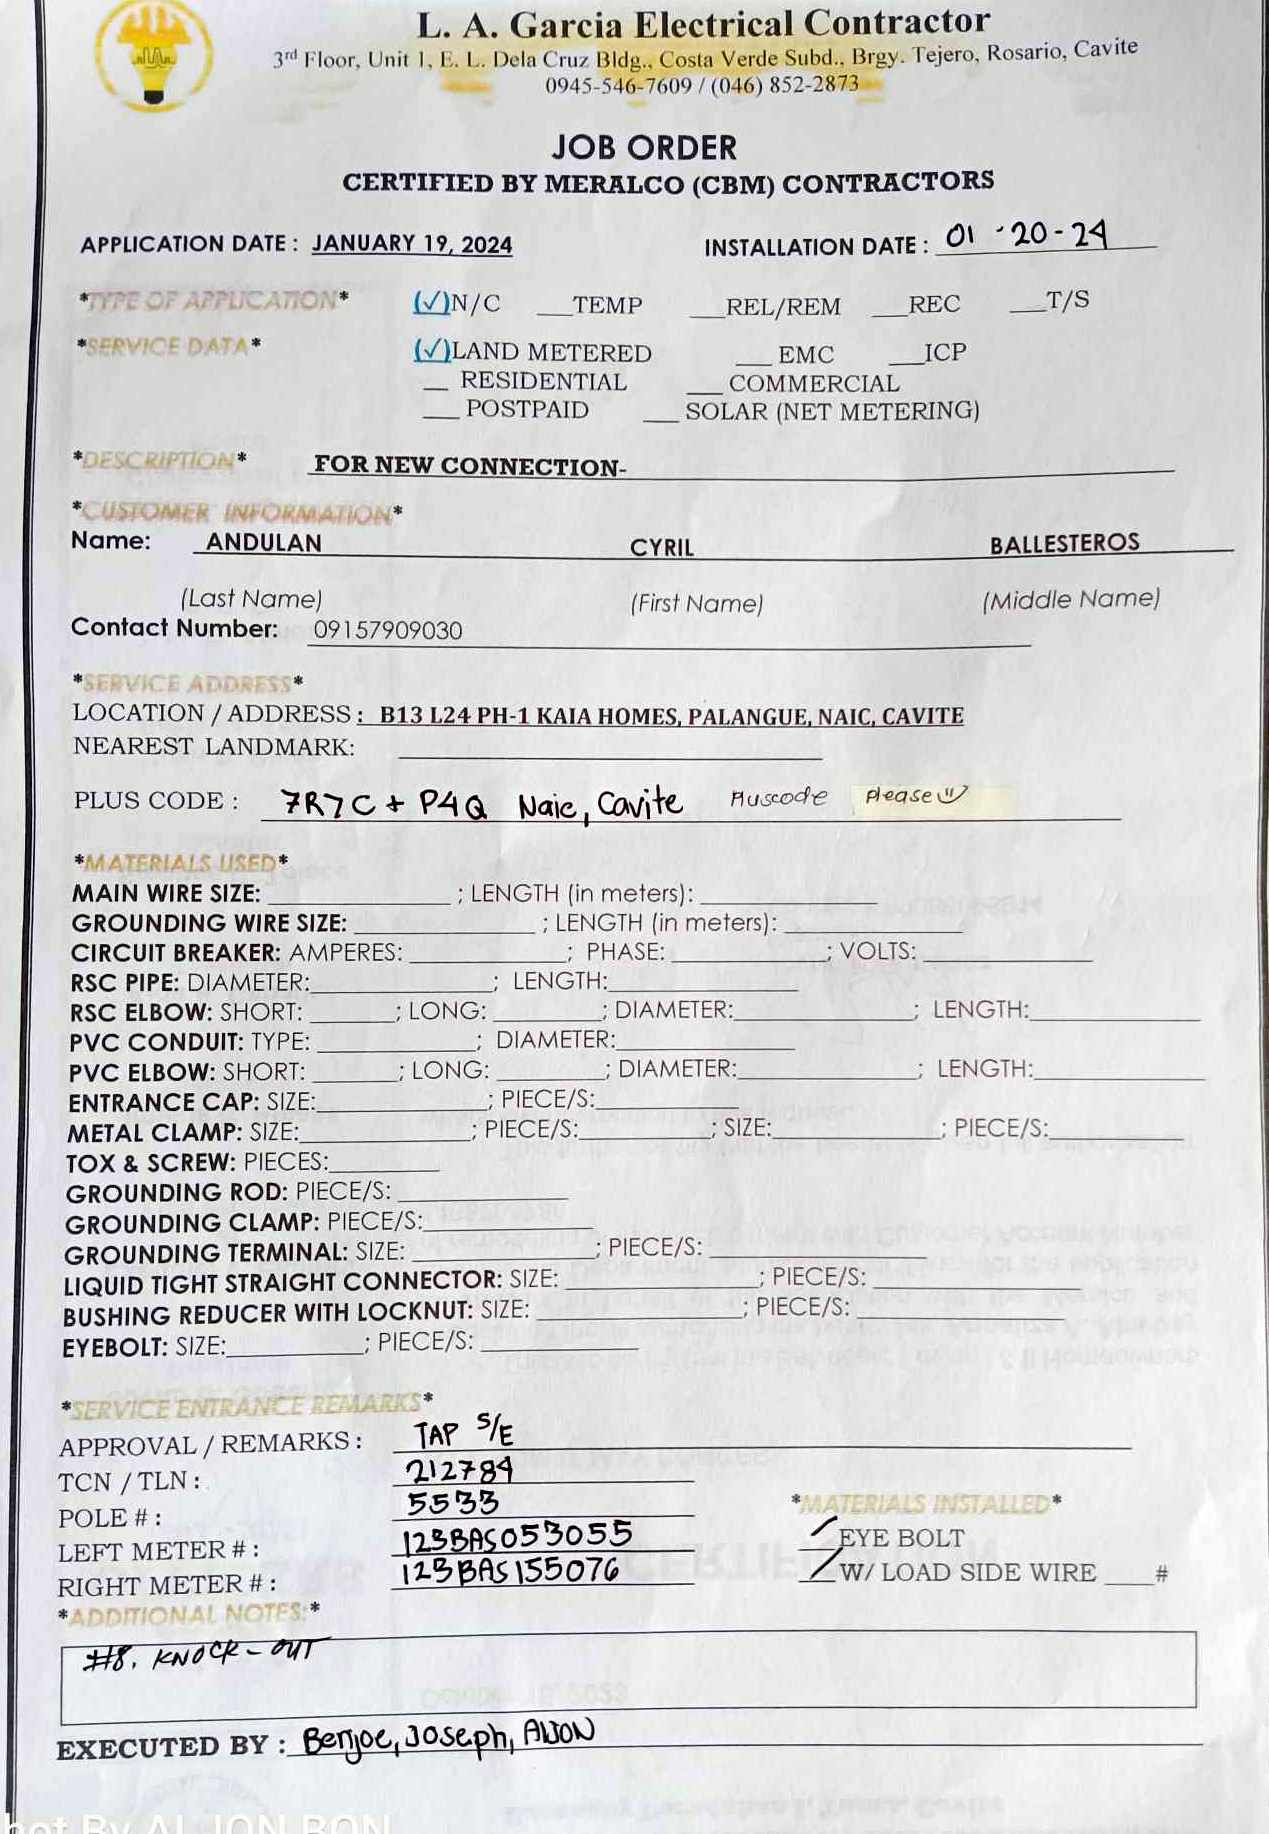 L. A. Garcia Electrical Contractor
3rd Floor, Unit 1, E. L. Dela Cruz Bldg., Costa Verde Subd., Brgy. Tejero, Rosario, Cavite
0945-546-7609 / (046) 852-2873
JOB ORDER
CERTIFIED BY MERALCO (CBM) CONTRACTORS
APPLICATION DATE : JANUARY 19, 2024 INSTALLATION DATE : 01-20-24
*TYPE OF APPLICATION* (✓)N/C ___TEMP ___REL/REM ___REC ___T/S
*SERVICE DATA* (✓)LAND METERED ___ EMC ___ICP
__ RESIDENTIAL ___COMMERCIAL
___ POSTPAID ___ SOLAR (NET METERING)
*DESCRIPTION* FOR NEW CONNECTION-
*CUSTOMER INFORMATION*
Name: ANDULAN CYRIL BALLESTEROS
(Last Name) (First Name) (Middle Name)
Contact Number: 09157909030
*SERVICE ADDRESS*
LOCATION / ADDRESS : B13 L24 PH-1 KAIA HOMES, PALANGUE, NAIC, CAVITE
NEAREST LANDMARK: ____
PLUS CODE : 7R7C + P4Q Naic, Cavite Pluscode Please
*MATERIALS USED*
MAIN WIRE SIZE: ____ ; LENGTH (in meters): ____
GROUNDING WIRE SIZE: ____ ; LENGTH (in meters): ____
CIRCUIT BREAKER: AMPERES: ____; PHASE: ____; VOLTS: ____
RSC PIPE: DIAMETER: ____; LENGTH: ____
RSC ELBOW: SHORT: ____; LONG: ____; DIAMETER: ____; LENGTH: ____
PVC CONDUIT: TYPE: ____; DIAMETER: ____
PVC ELBOW: SHORT: ____; LONG: ____; DIAMETER: ____; LENGTH: ____
ENTRANCE CAP: SIZE: ____; PIECE/S: ____
METAL CLAMP: SIZE: ____; PIECE/S: ____; SIZE: ____; PIECE/S: ____
TOX & SCREW: PIECES: ____
GROUNDING ROD: PIECE/S: ____
GROUNDING CLAMP: PIECE/S: ____
GROUNDING TERMINAL: SIZE: ____; PIECE/S: ____
LIQUID TIGHT STRAIGHT CONNECTOR: SIZE: ____; PIECE/S: ____
BUSHING REDUCER WITH LOCKNUT: SIZE: ____; PIECE/S: ____
EYEBOLT: SIZE: ____; PIECE/S: ____
*SERVICE ENTRANCE REMARKS*
APPROVAL / REMARKS : TAP S/E
TCN / TLN : 212784
POLE # : 5533 *MATERIALS INSTALLED*
LEFT METER # : 123BAS053055 EYE BOLT
RIGHT METER # : 123BAS155076 W/ LOAD SIDE WIRE ___#
*ADDITIONAL NOTES:*
#8. KNOCK-OUT
EXECUTED BY : Benjoe, Joseph, AlJON
hot By ALJON BON